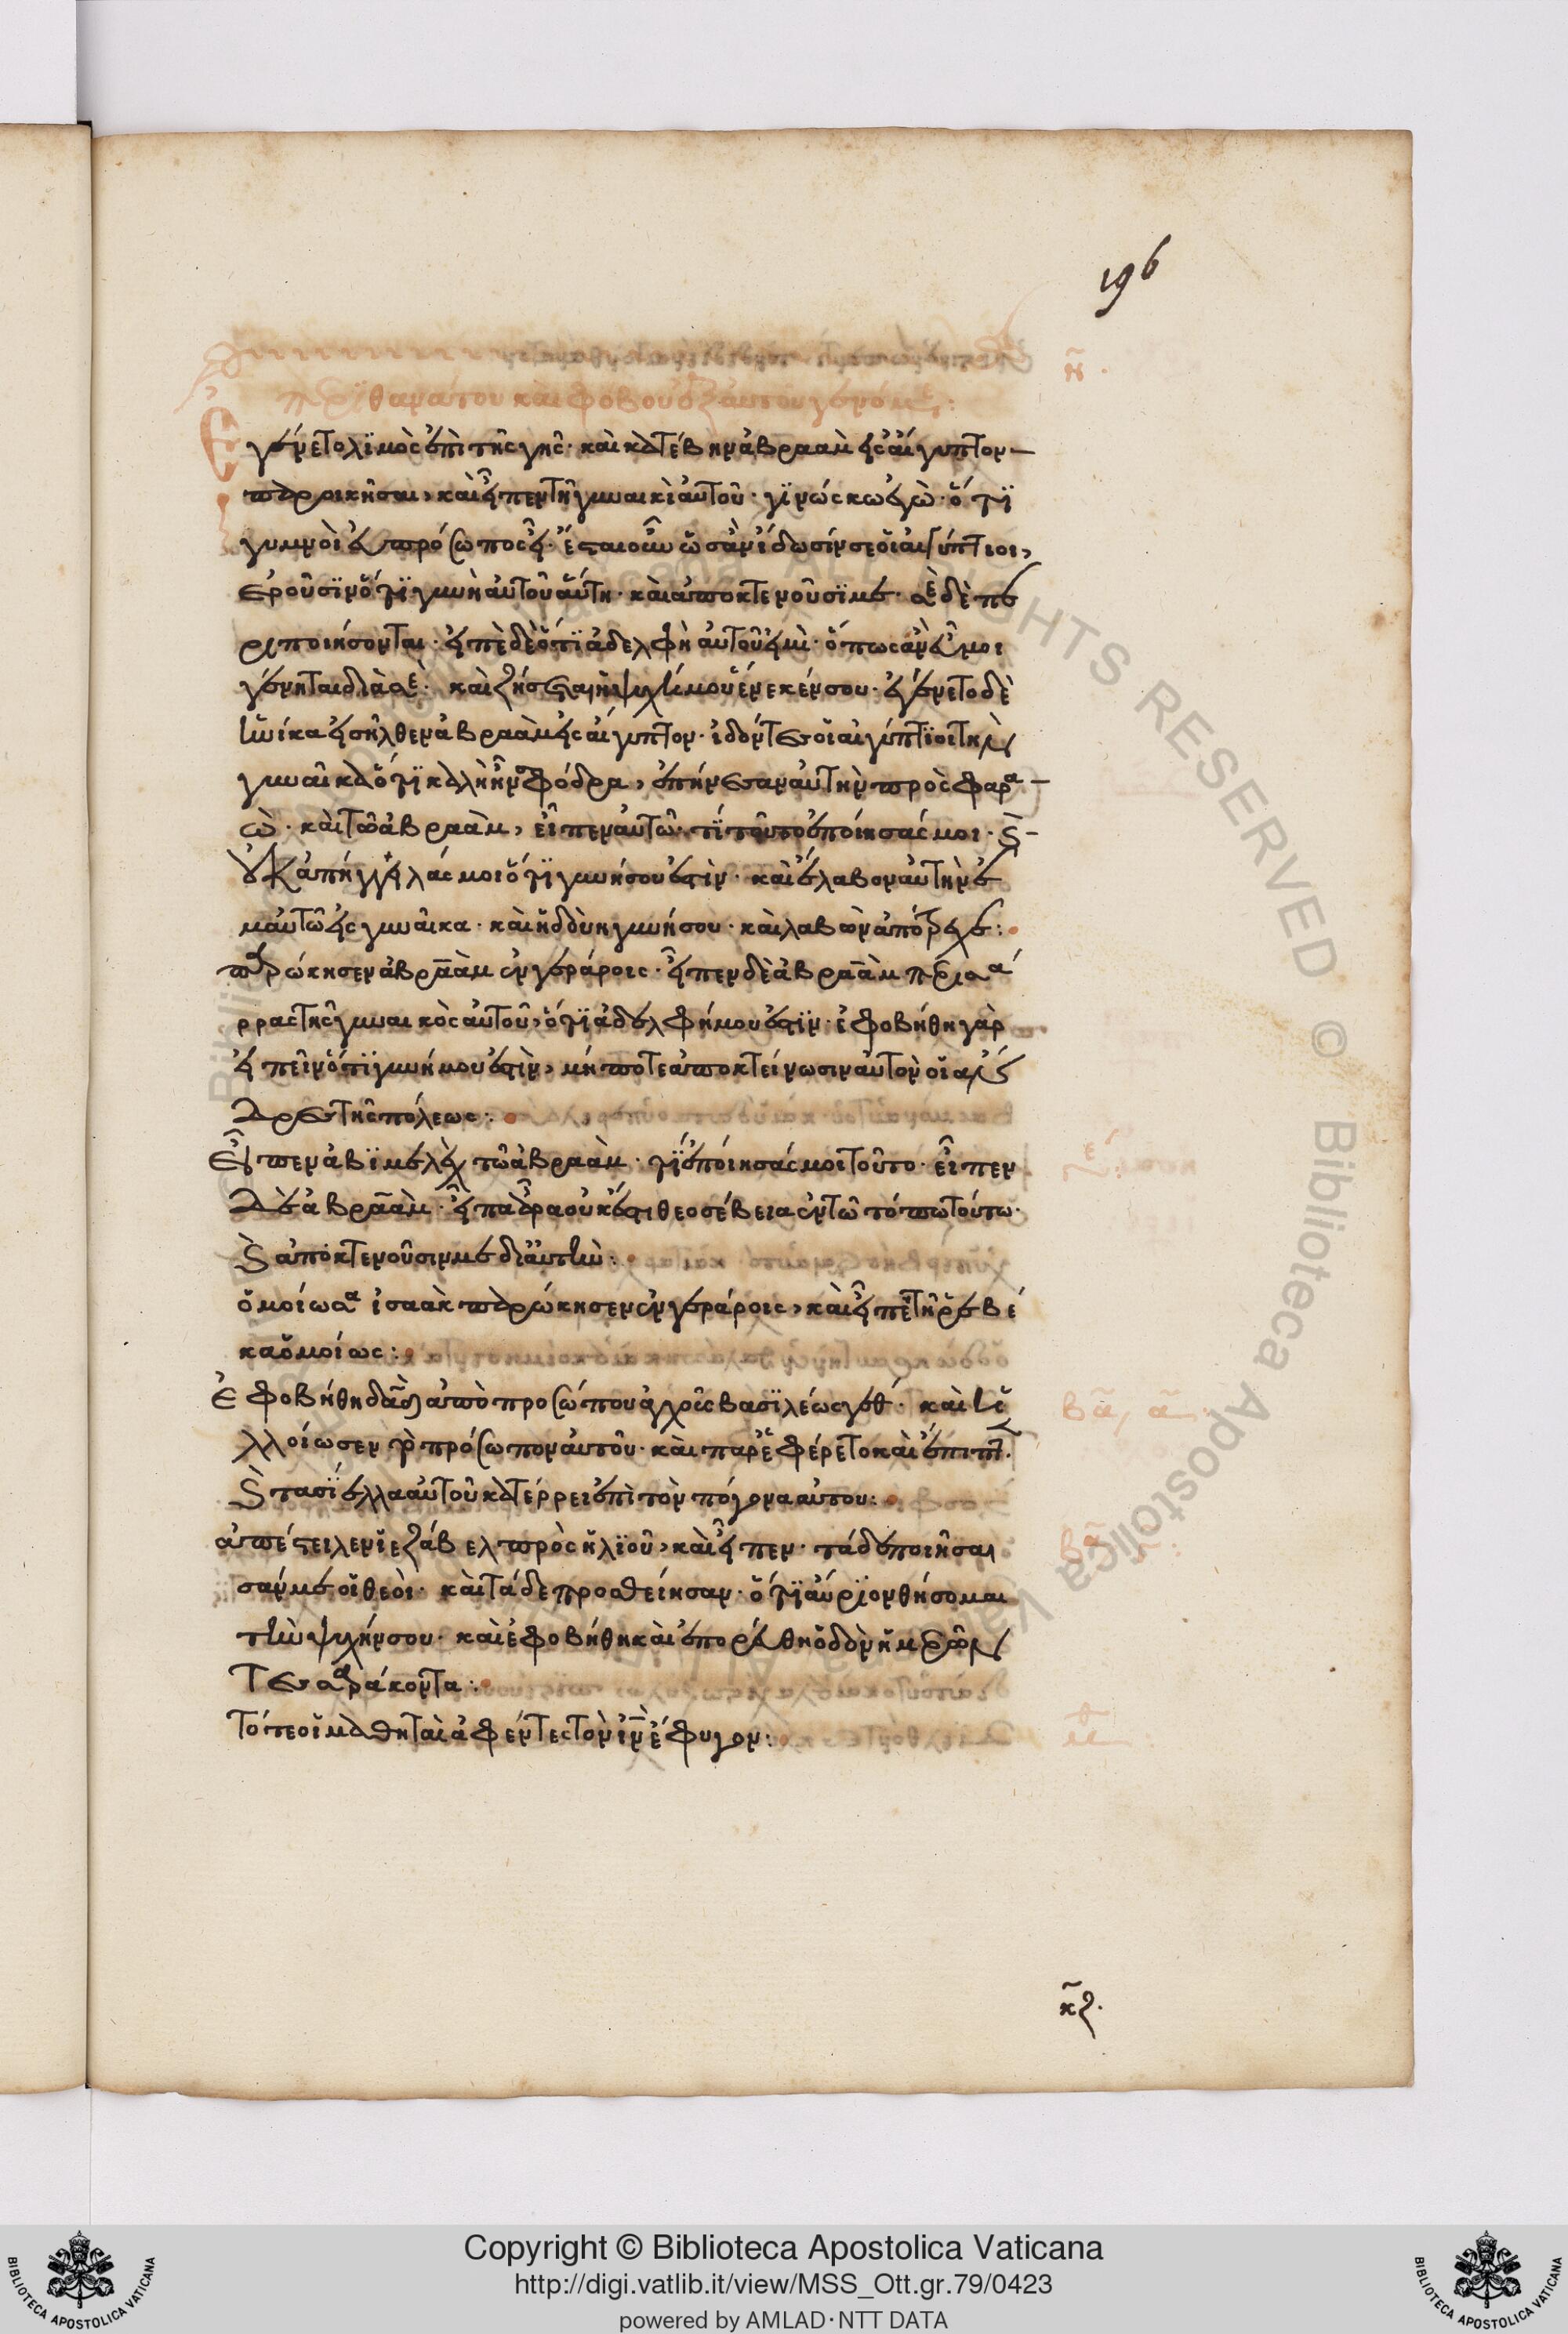 196
ν̃.
περὶ θανάτου καὶ φόβου τοῦ ἐξ αὐτοῦ γενομένου:
Ἐγένετο λϊμὸς ἐπὶ τῆς γῆς· καὶ κατέβην ἀβραὰμ εἰς αἴγυπτον
παροικῆσαι, καὶ εἶπεν τῆ γυναικὶ αὐτοῦ· γϊνώσκω ἐγὼ· ὅτϊ
γυνὴ εὐπρόσωπος εἶ· ἔσται οὖν ὡς ἂν ἴδωσίν σε οἱ αἰγύπτιοι,
ἐροῦσϊν ὅτϊ γυνὴ αὐτοῦ αὕτη· καὶ ἀποκτενοῦσϊ με· σὲ δὲ πε
ριποιήσονται· εἰπὲ δὲ ὅτϊ ἀδελφὴ αὐτοῦ εἰμὶ· ὅπως ἂν εὖ μοι
γένηται διὰ σὲ· καὶ ζήσεται ἡ ψυχή μου ἕνεκέν σου· ἐγένετο δὲ
ἡνίκα εἰσῆλθεν ἀβραὰμ εἰς αἴγυπτον· ἰδόντες οἱ αἰγύπτϊοι τὴν
γυναῖκα ὅτϊ καλὴ ἦν σφόδρα, ἐπήνεσαν αὐτὴν πρὸς φαρα
ὼ· καὶ τῶ ἀβραὰμ, εἶπεν αὐτῶ· τϊ τοῦτο ἐποίησάς μοι· ὅτι
οὐκ ἀπήγγειλάς μοι ὅτϊ γυνή σου ἐστὶν· καὶ ἔλαβον αὐτὴν ἐ
μαυτῶ εἰς γυναῖκα· καὶ ἰδοὺ ἡ γυνή σου· καὶ λαβὼν ἀπότρεχε:
παρώκησεν ἀβραὰμ ἐν γεράροις· εἶπεν δὲ ἀβραὰμ περὶ σά
ρρας τῆς γυναικὸς αὐτοῦ, ὅτϊ ἀδελφή μου ἐστϊν· ἐφοβήθη γὰρ
εἰπεῖν ὅτϊ γυνή μου ἐστὶν, μή ποτε ἀποκτείνωσιν αὐτὸν οἱ ἄν
δρες τῆς πόλεως:
Εἶπεν ἀβϊμελὲχ τῶ ἀβραὰμ· τϊ ἐποίησάς μοι τοῦτο· εἶπεν
δὲ ἀβραὰμ· εἶπα ἄρα οὐκ ἔστι θεοσέβεια ἐν τῶ τόπω τούτω·
καὶ ἀποκτενοῦσιν με δι' αὐτὴν:
ὁμοίως ἰσαὰκ παρώκησεν ἐν γεράροις, καὶ εἶπε τῆ ῥεβέ
κα ὁμοίως:
Ἐφοβήθη δαδ ἀπὸ προσώπου ἀγχοῖς βασϊλέως γέθ· καὶ ἠ
λλοίωσεν τὸ πρόσωπον αὐτοῦ· καὶ παρεφέρετο καὶ ἔπιπτεν·
καὶ τὰ σίελλα αὐτοῦ κατέρρει ἐπὶ τὸν πόγωνα αὐτου:
ἀπέστειλεν ϊεζάβελ πρὸς ἠλϊοῦ, καὶ εἶπεν· τάδε ποιῆσαι
σάν με οἱ θεοὶ· καὶ τάδε προσθείησαν· ὅτϊ αὔρϊον θήσομαι
τὴν ψυχήν σου· καὶ ἐφοβήθη καὶ ἐπορεύθη ὁδὸν ἡμερῶν
τεσσαράκοντα:
Τότε οἱ μαθηταὶ ἀφέντες τὸν ἰν ἔφυγον:
κζ.
Copyright © Biblioteca Apostolica Vaticana
http://digi.vatlib.it/view/MSS_Ott.gr.79/0423
powered by AMLAD·NTT DATA